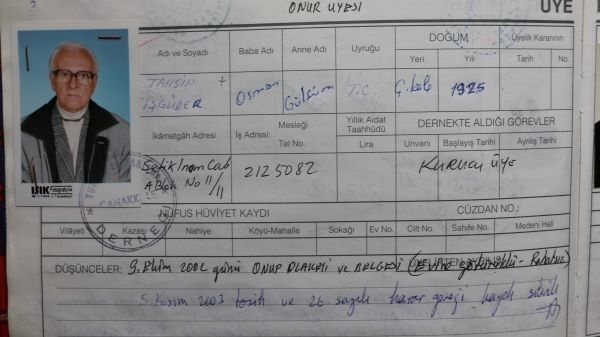 ONUR ÜYESİ
ÜYE
Adı ve Soyadı
Baba Adı
Anne Adı
Uyruğu
DOĞUM
Üyelik Kararının
Yeri
Yılı
Tarih
No.
TAHSİN
İŞGÜDER
Osman
Gülsüm
T.C
Ç.kale
1925
İkâmetgâh Adresi
İş Adresi:
Mesleği
Tel No.
Yıllık Aidat
Taahhüdü
Lira
DERNEKTE ALDIĞI GÖREVLER
Unvanı
Başlayış Tarihi
Ayrılış Tarihi
Cad
A Blok No 11/
11
2125082
Kurucu ÜYE
IŞIK
DERNEĞ
NÜFUS HÜVİYET KAYDI
CÜZDAN NO.:
Vilâyeti
Kazası
Nahiye
Köyü-Mahalle
Sokağı
Ev No.
Cilt No.
Sahife No.
Medeni Hali
DÜŞÜNCELER:
9. Ekim 2002 günü ONUR PLAKETİ ve BELGESİ
5 Kasım 2003 tarih ve 26 sayılı karar gereği kaydı silindi